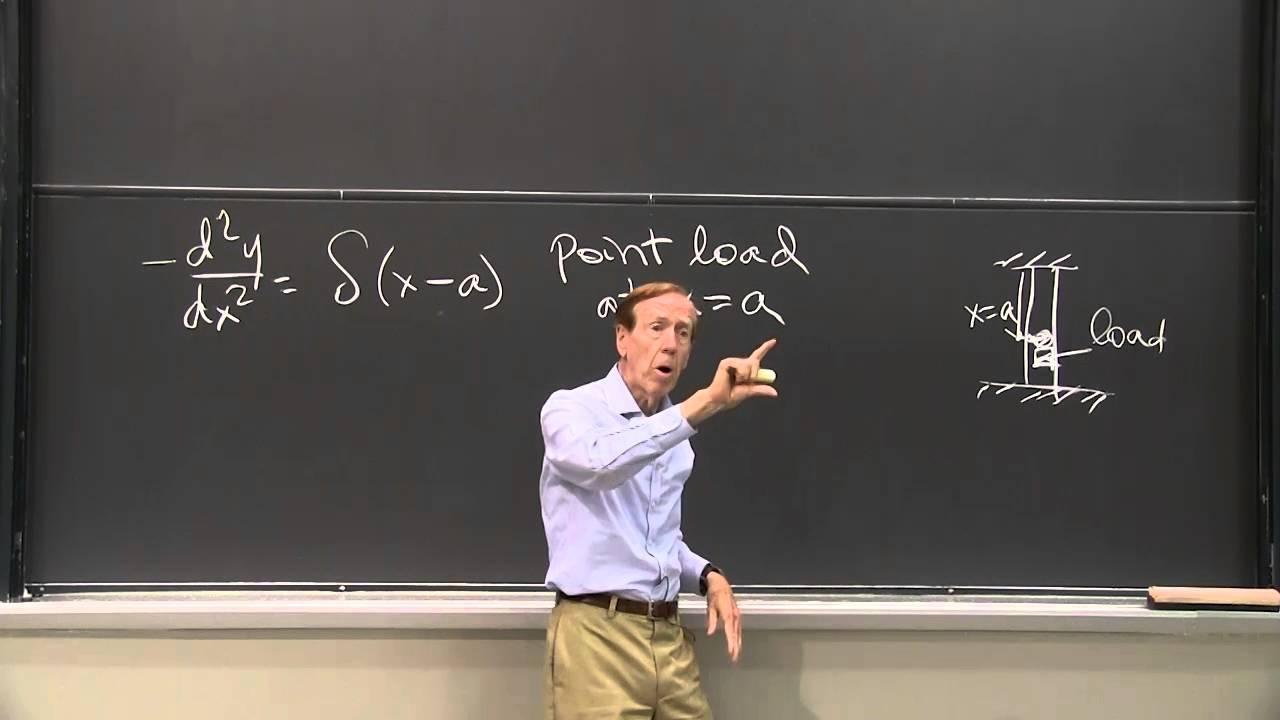 -d²y/dx² = δ(x-a)
point load
at x=a
x=a
load